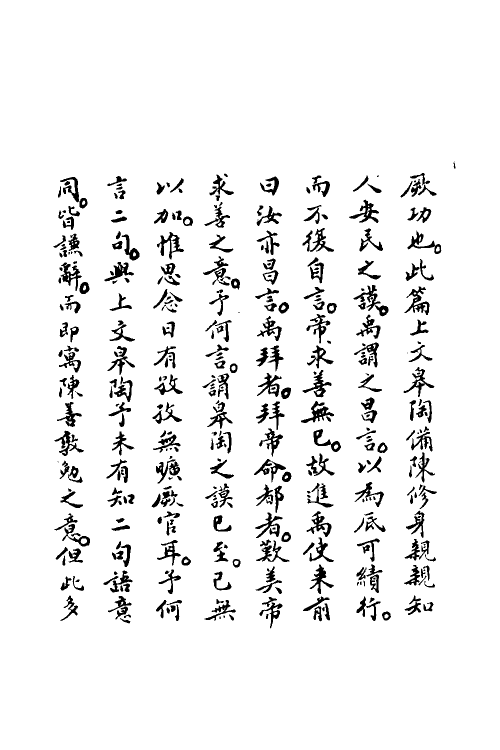 厥功也。此篇上文皋陶備陳修身親親知
人安民之謨。禹謂之昌言。以為底可績行。
而不復自言。帝求善無已。故進禹使來前
曰汝亦昌言。禹拜者。拜帝命。都者。歎美帝
求善之意。予何言。謂皋陶之謨已至。已無
以加。惟思念日有孜孜無曠厥官耳。予何
言二句。與上文皋陶予未有知二句語意
同。皆謙辭。而即寓陳善敦勉之意。但此多